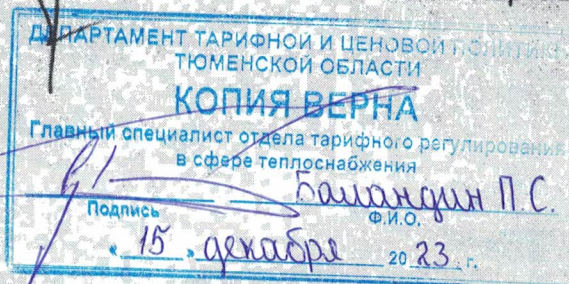 ДЕПАРТАМЕНТ ТАРИФНОЙ И ЦЕНОВОЙ ПОЛИТИКИ
ТЮМЕНСКОЙ ОБЛАСТИ
КОПИЯ ВЕРНА
Главный специалист отдела тарифного регулирования
в сфере теплоснабжения
Баландин П.С.
Подпись Ф.И.О.
« 15 » декабря 20 23 г.